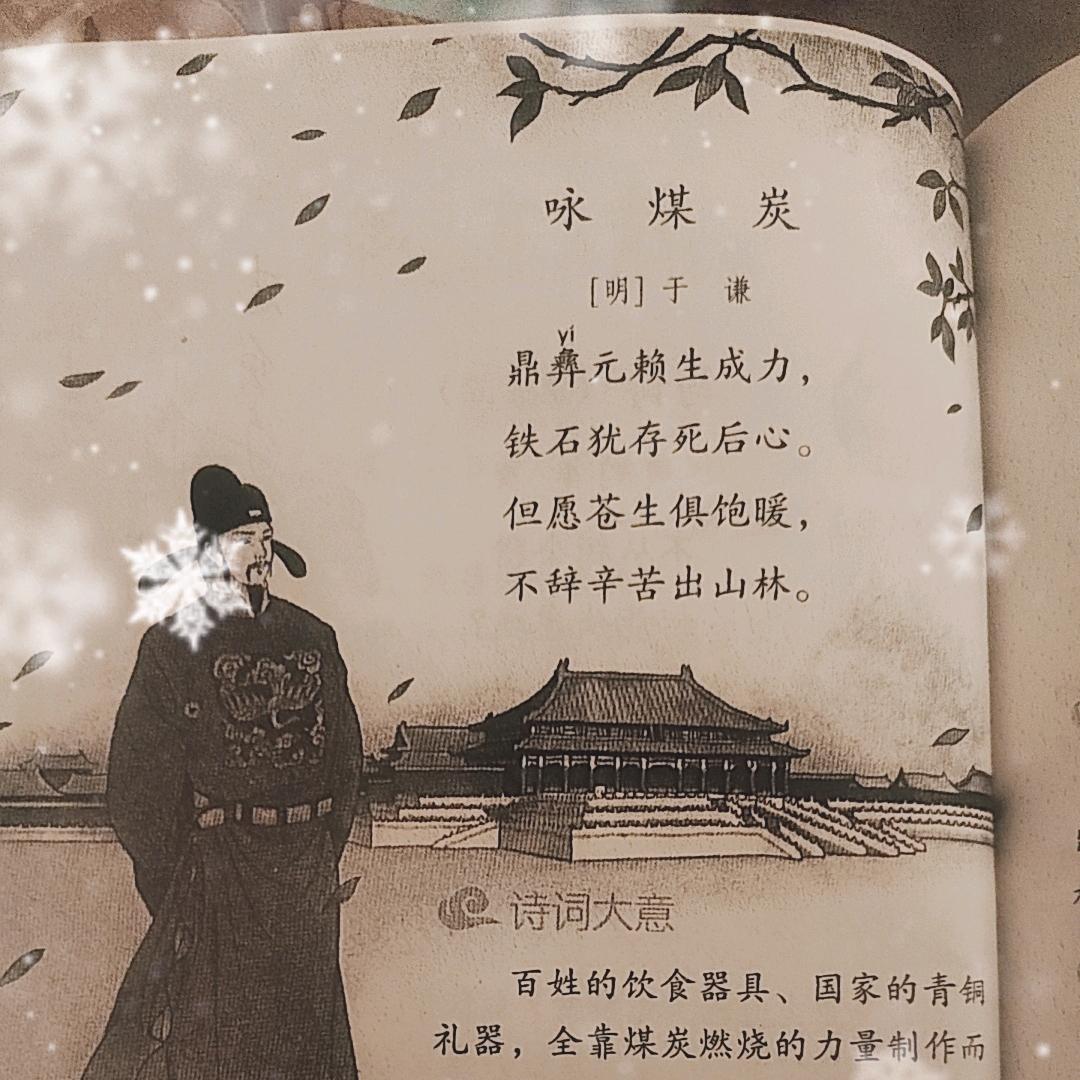 咏 煤 炭
[明] 于 谦
yí
鼎彝元赖生成力，
铁石犹存死后心。
但愿苍生俱饱暖，
不辞辛苦出山林。
诗词大意
百姓的饮食器具、国家的青铜
礼器，全靠煤炭燃烧的力量制作而